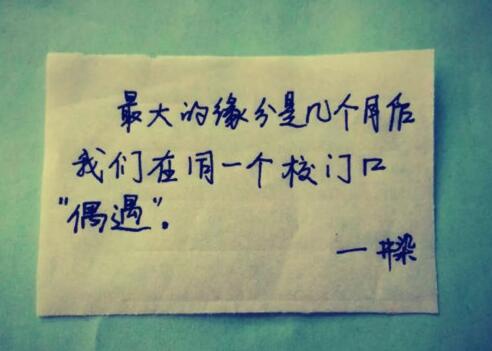 最大的缘分是几个月后
我们在同一个校门口
"偶遇"。
一井染